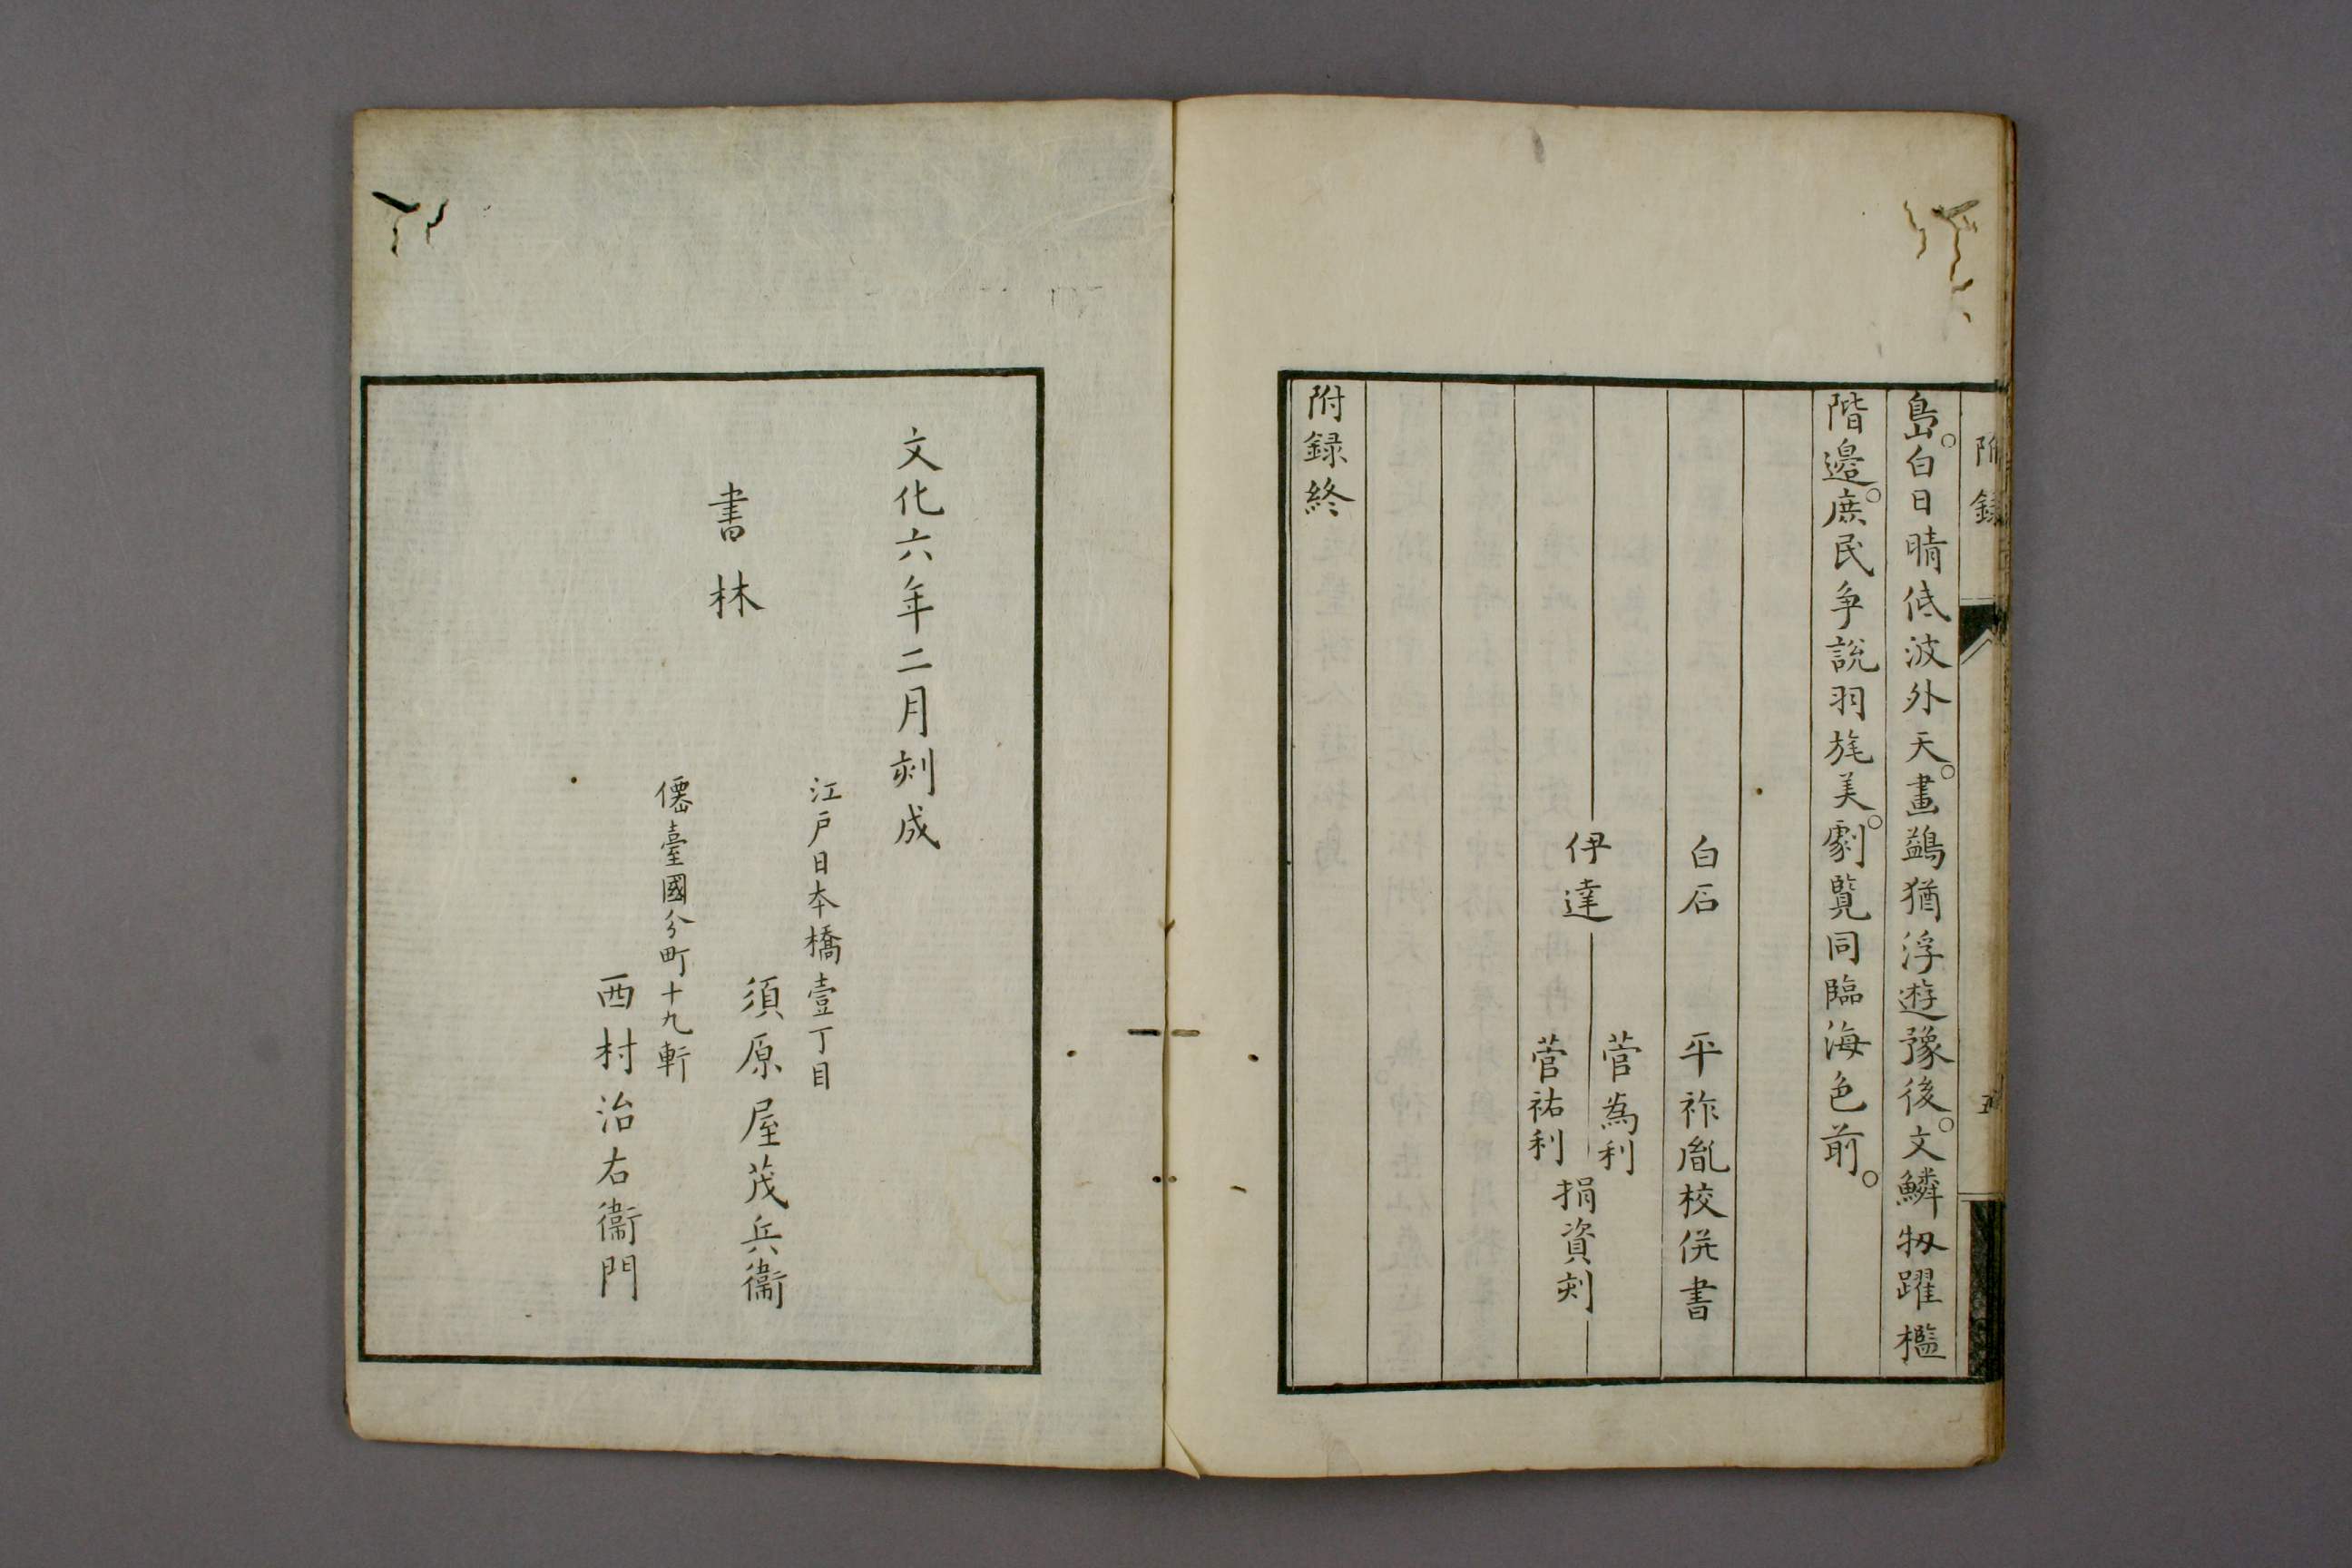 附録
五
島。白日晴低波外天。畫鷁猶浮遊豫後。文鱗牣躍檻
階邉。庶民争説羽旄美。劇覧同臨海色前。
白石　平祚胤校併書
伊達　菅為利
菅祐利　捐資刻
附録終
文化六年二月刻成
江戸日本橋壹丁目
書林　須原屋茂兵衞
僊臺國分町十九軒
西村治右衞門